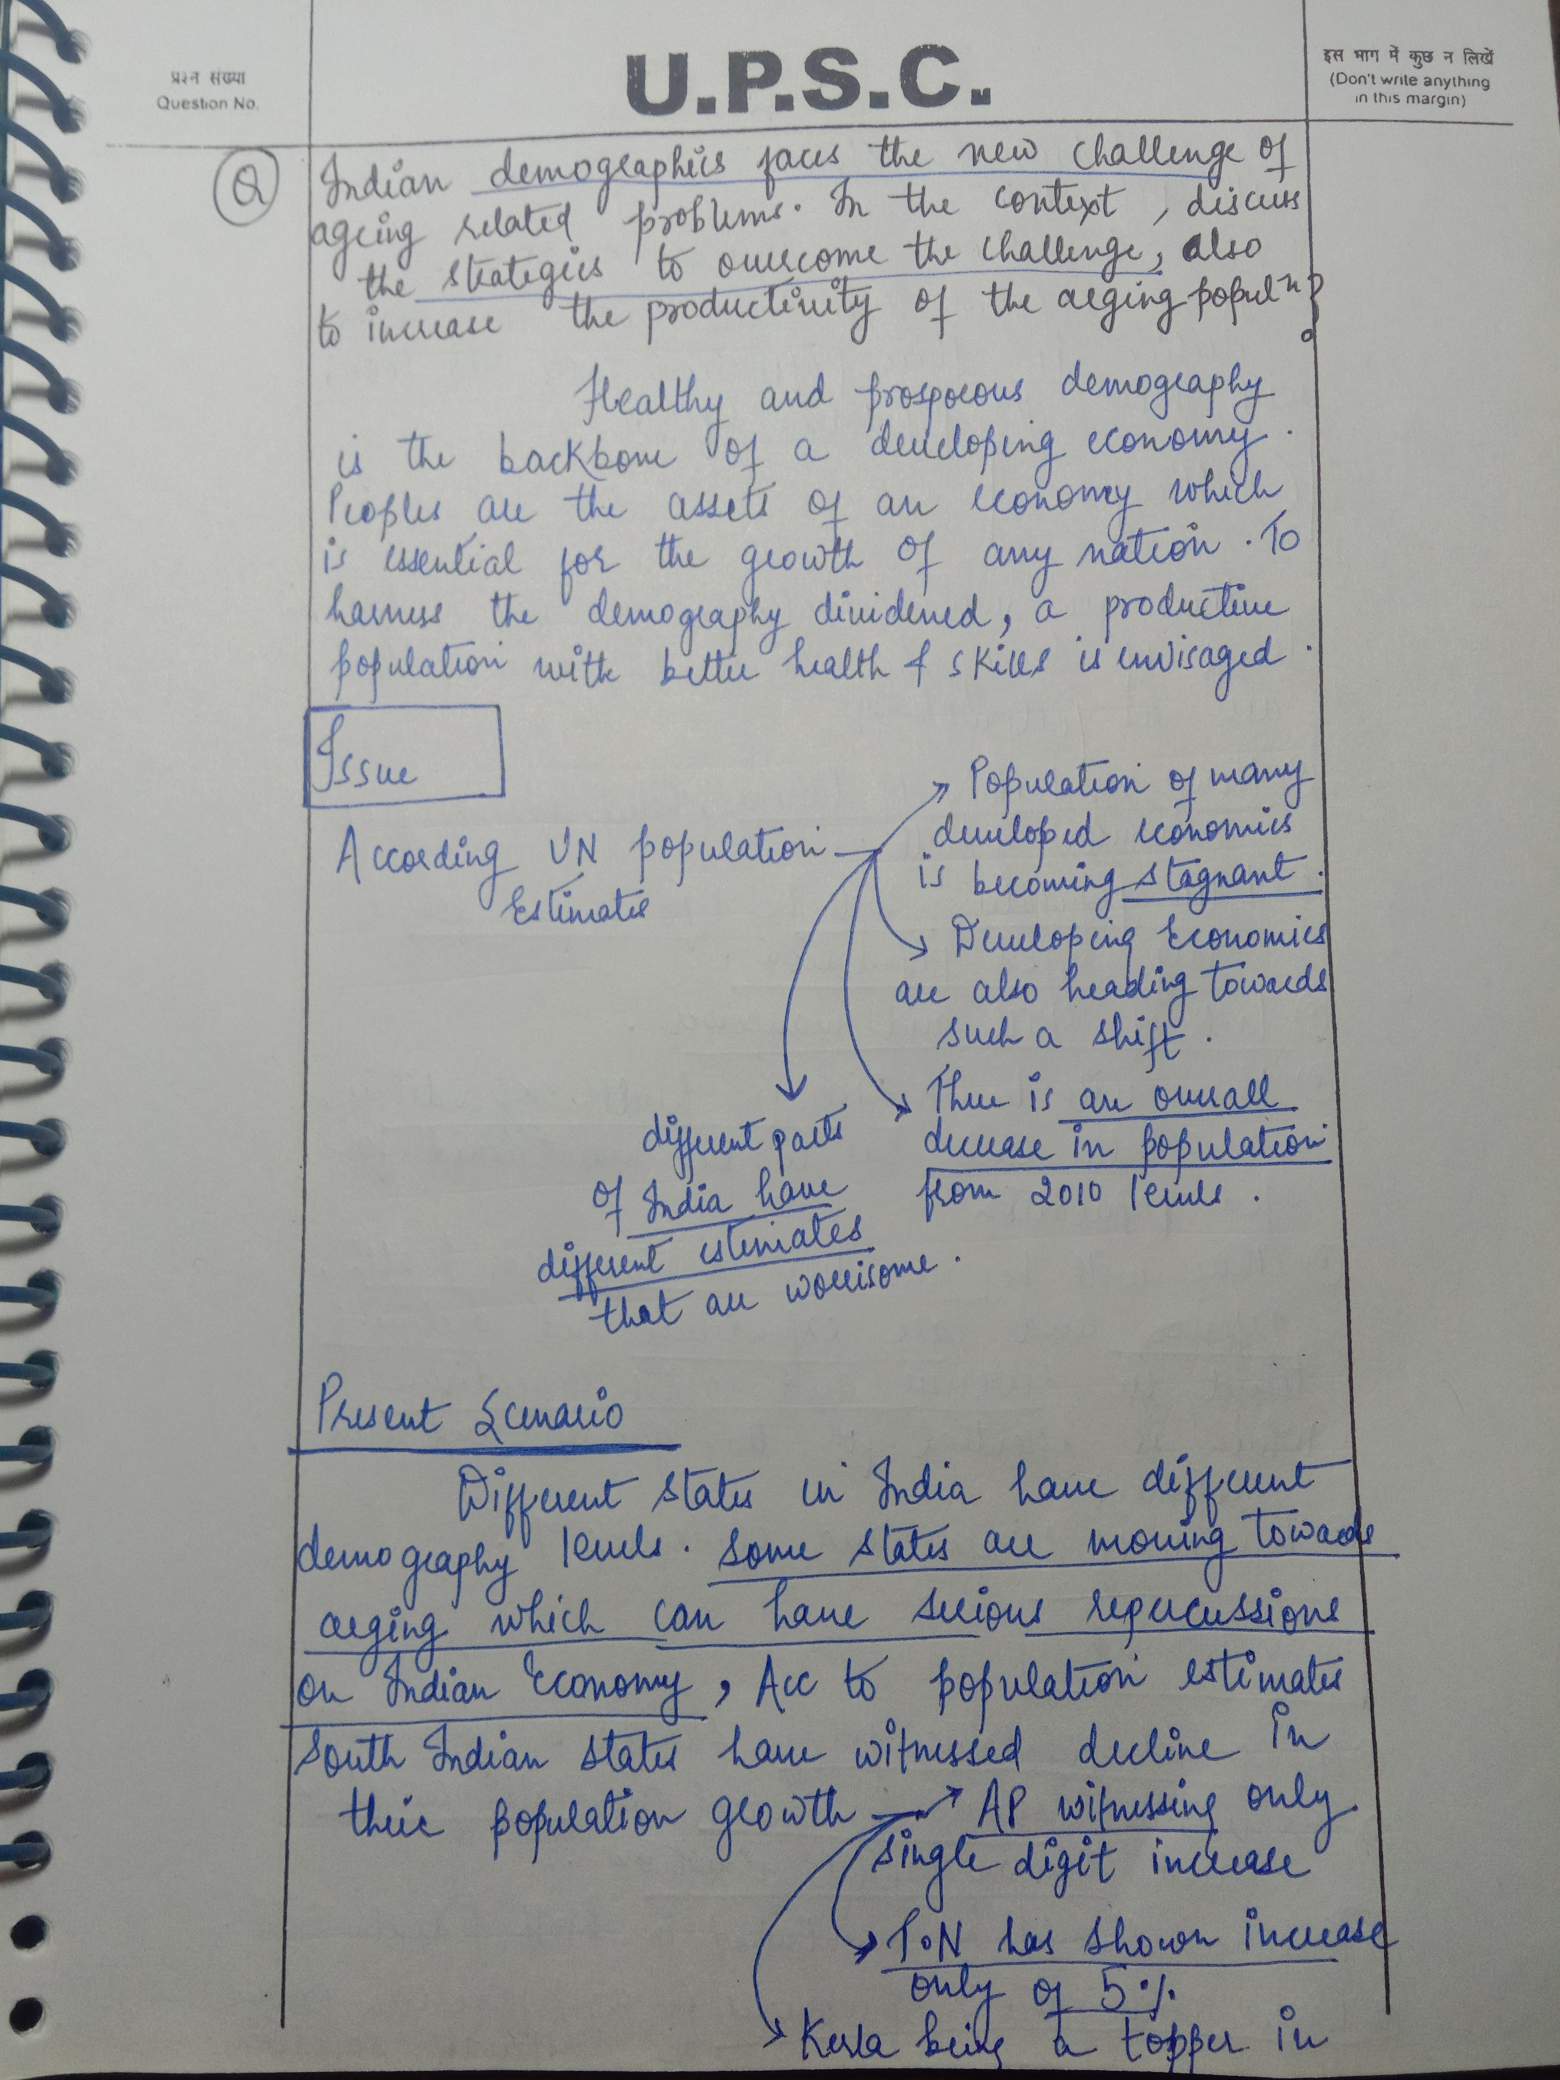 प्रश्न संख्या
Question No.
U.P.S.C.
इस भाग में कुछ न लिखें
(Don't write anything
in this margin)
Q Indian demographics faces the new challenge of
ageing related problems. In the context, discuss
the strategies to overcome the challenge, also
to increase the productivity of the aeging populn?
Healthy and prosperous demography
is the backbone of a developing economy.
Peoples are the assets of an economy which
is essential for the growth of any nation. To
harness the demography dividened, a productive
population with better health & skills is envisaged.
Issue
According UN population
Estimates
Population of many
developed economies
is becoming stagnant.
Developing Economies
are also heading towards
such a shift.
There is an overall
decrease in population
from 2010 levels.
different parts
of India have
different estimates
that are worrisome.
Present Scenario
Different states in India have different
demography levels. Some states are moving towards
aeging which can have serious repercussions
on Indian Economy, Acc to population estimates
South Indian states have witnessed decline in
their population growth
AP witnessing only
single digit increase
T.N has shown increase
only of 5%
Kerla being a topper in